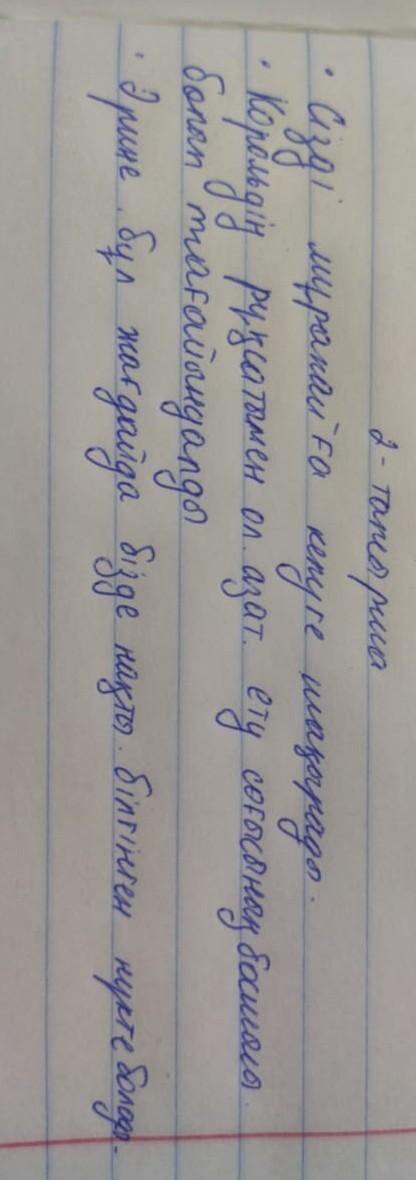 2-тапсырма
• Сізді мұрамайға келуге шақырады.
• Корольдің рұқсатымен ол азат. ету соғысының басшысы.
болып тағайындалды
• Әрине, бұл жағдайда бізде нақты. білгінген нүкте болады.